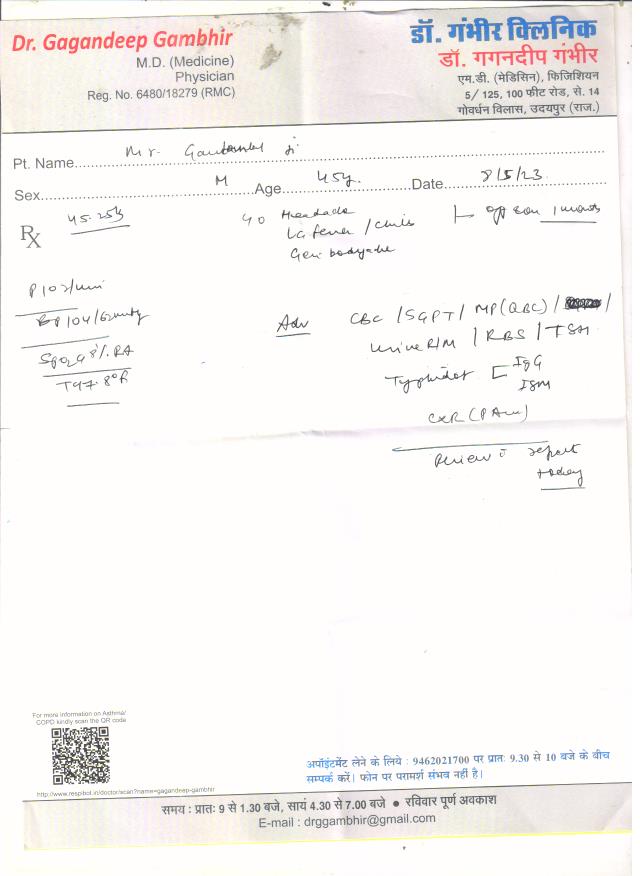 Dr. Gagandeep Gambhir
M.D. (Medicine)
Physician
Reg. No. 6480/18279 (RMC)
डॉ. गंभीर क्लिनिक
डॉ. गगनदीप गंभीर
एम.डी. (मेडिसिन), फिजिशियन
5/ 125, 100 फीट रोड, से. 14
गोवर्धन विलास, उदयपुर (राज.)
Pt. Name Mr.
Sex M Age 45y. Date 8/5/23
Rx
c/o Headache
fever / chills
Gen. bodyache
off & on 1 month
P 102/min
BP 104/62 mmHg
SpO2 98% RA
T 97.8°F
Adv CBC / SGPT / MP (QBC) /
Urine R/M / RBS / TSH
Typhidot IgG
IgM
CXR (PA view)
Review c̄ report
today
For more information on Asthma/
COPD kindly scan the QR code
http://www.respibot.in/doctor/scan?name=gagandeep-gambhir
अपॉइंटमेंट लेने के लिये : 9462021700 पर प्रातः 9.30 से 10 बजे के बीच
सम्पर्क करें। फोन पर परामर्श संभव नहीं है।
समय : प्रातः 9 से 1.30 बजे, सायं 4.30 से 7.00 बजे ● रविवार पूर्ण अवकाश
E-mail : drggambhir@gmail.com